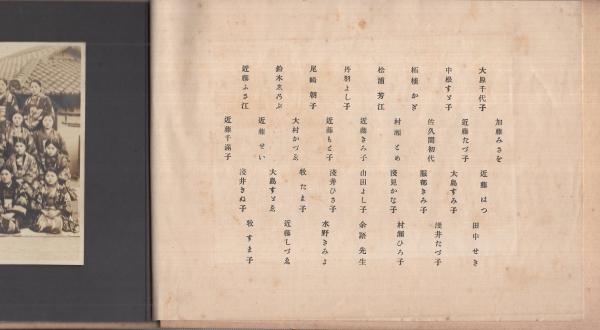 大原千代子
中根すゞ子
柘植かぎ
松浦芳江
丹羽よし子
尾崎朝子
鈴木ゑ乃ぶ
近藤ふさ江
加藤みさを
近藤たづ子
佐久間初代
村瀬とめ
近藤きみ子
近藤もと子
大村かづゑ
近藤せい
近藤千満子
近藤はつ
大島すみ子
服部きみ子
淺見かな子
山田よし子
淺井ひさ子
牧たま子
大島すゞゑ
淺井きぬ子
田中せき
淺井たづ子
村瀬ひろ子
余語先生
水野きみよ
近藤しづゑ
牧すま子